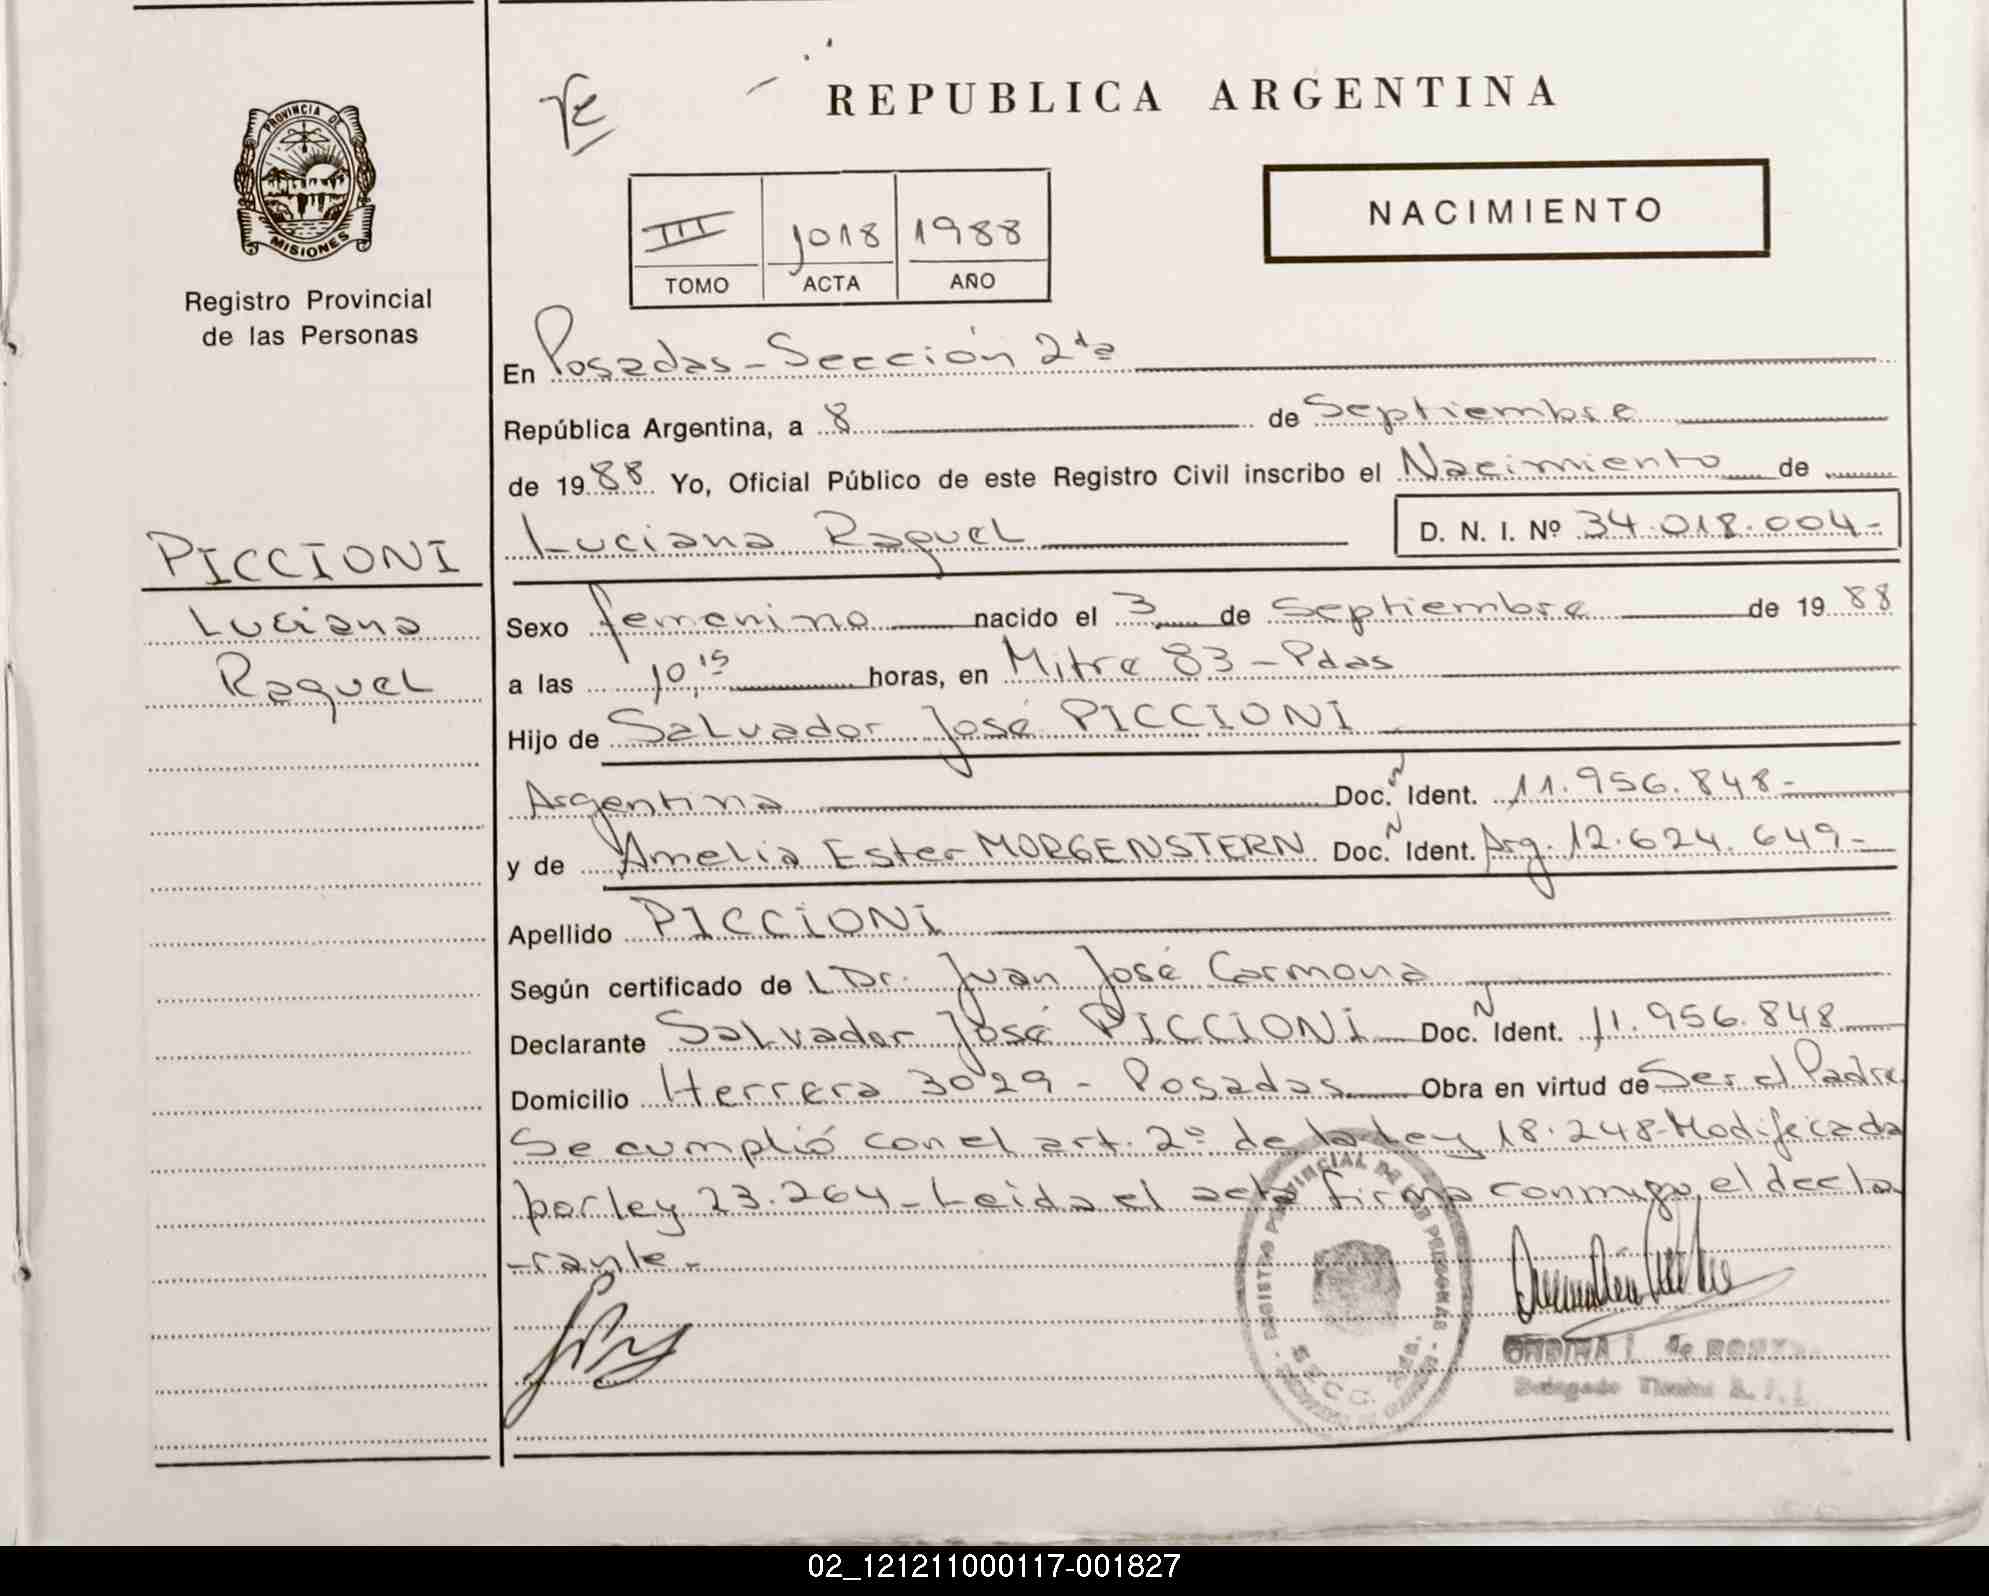 REPUBLICA ARGENTINA
PROVINCIA DE
MISIONES
Registro Provincial
de las Personas
NACIMIENTO
III 1018 1988
TOMO ACTA AÑO
En Posadas - Sección 2da
República Argentina, a 8 de Septiembre
de 1988 Yo, Oficial Público de este Registro Civil inscribo el Nacimiento de
Luciana Raquel D. N. I. Nº 34.018.004-
PICCIONI
Luciana
Raquel
Sexo femenino nacido el 3 de Septiembre de 1988
a las 10,15 horas, en Mitre 83 - Pdas
Hijo de Salvador José PICCIONI
Argentina Doc. N Ident. 11.956.848-
y de Amelia Ester MORGENSTERN Doc. N Ident. Arg. 12.624.649-
Apellido PICCIONI
Según certificado de L Dr. Juan José Carmona
Declarante Salvador José PICCIONI Doc. N Ident. 11.956.848
Domicilio Herrera 3029 - Posadas Obra en virtud de Ser el Padre
Se cumplió con el art. 2º de la Ley 18.248-Modificada
por ley 23.264 - Leida el acta firma conmigo, el decla
-rante-
REGISTRO PROVINCIAL DE LAS PERSONAS
SECC. 2da.
Delegado
02_121211000117-001827